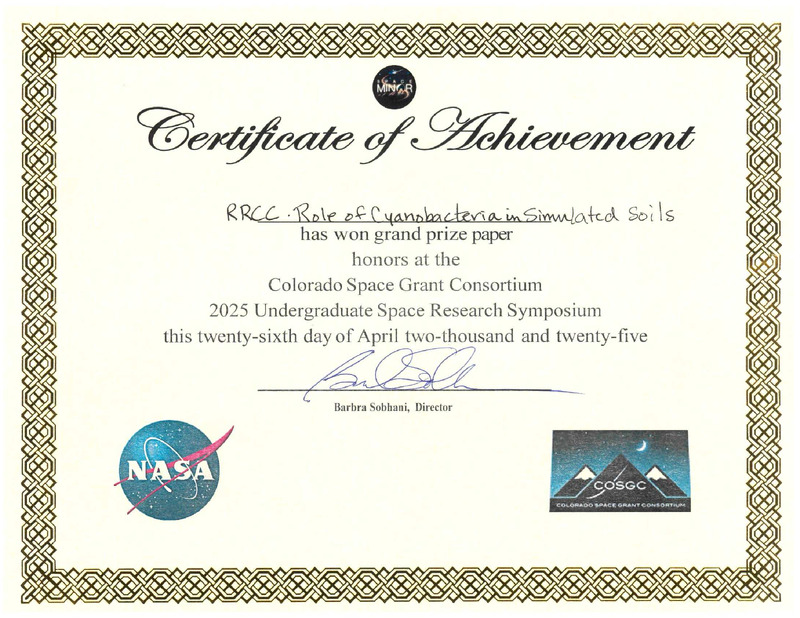 SPACE
MINOR
Certificate of Achievement
RRCC. Role of Cyanobacteria in Simulated Soils
has won grand prize paper
honors at the
Colorado Space Grant Consortium
2025 Undergraduate Space Research Symposium
this twenty-sixth day of April two-thousand and twenty-five
Barbra Sobhani, Director
NASA
COSGC
COLORADO SPACE GRANT CONSORTIUM